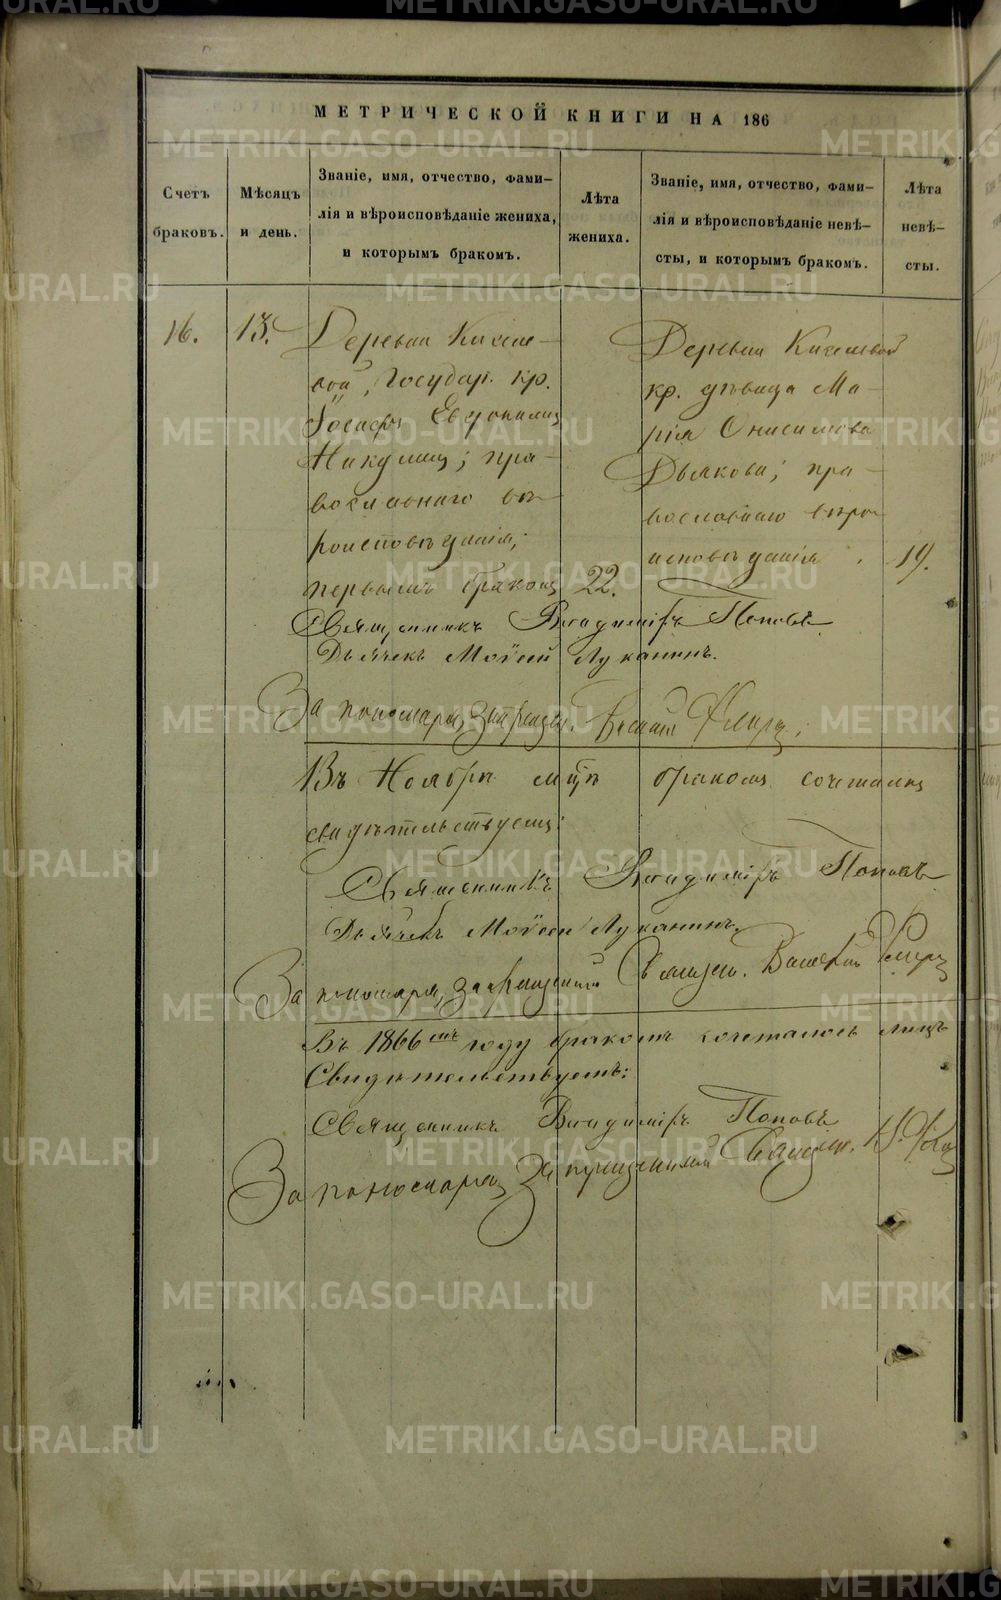 МЕТРИЧЕСКОЙ КНИГИ НА 186
Счетъ браковъ.
Мѣсяцъ и день.
Званіе, имя, отчество, фами-
лія и вѣроисповѣданіе жениха,
и которымъ бракомъ.
Лѣта жениха.
Званіе, имя, отчество, фами-
лія и вѣроисповѣданіе невѣ-
сты, и которымъ бракомъ.
Лѣта невѣ-
сты.
16.
13.
Деревни Кисле-
вой, Государ. кр.
Іосифъ Евдокимовъ
Никулинъ; пра-
вославнаго вѣ-
роисповѣданія,
первымъ бракомъ
22.
Деревни
кр. дѣвица Ма-
рія Онисимова
Дьякова; пра-
вославнаго вѣро-
исповѣданія
19.
Священникъ Владиміръ Поповъ
Дьячекъ Моѵсей Луканинъ.
За пономаря,
Въ Ноябрѣ м-цѣ бракомъ сочетались
свидѣтельствуемъ:
Священникъ Владиміръ Поповъ
Дьячекъ Моѵсей Луканинъ.
За пономаря,
Въ 1866мъ году бракомъ сочеталось лицъ
Свидѣтельствуетъ:
Священникъ Владиміръ Поповъ
За пономаря
METRIKI.GASO-URAL.RU